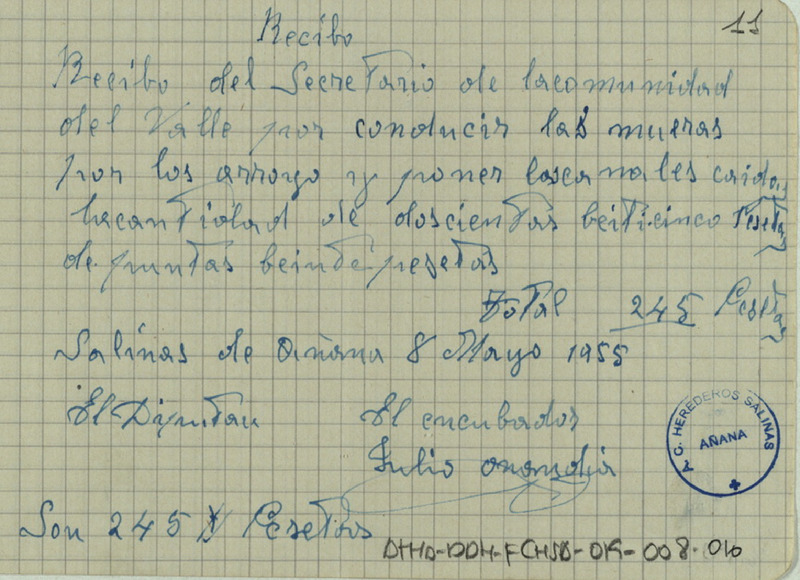 11
Recibo
Recibo del Secretario de lacomunidad
del Valle por conducir las mueras
por los arroyo y poner loscanales caidos
lacantidad de doscientas beiticinco Pesetas
de puntas beinte pesetas
Total 245 Pesetas
Salinas de Añana 8 Mayo 1955
El Diputau El encubador
Julio
C. HEREDEROS SALINAS
AÑANA
Son 245 Pesetas